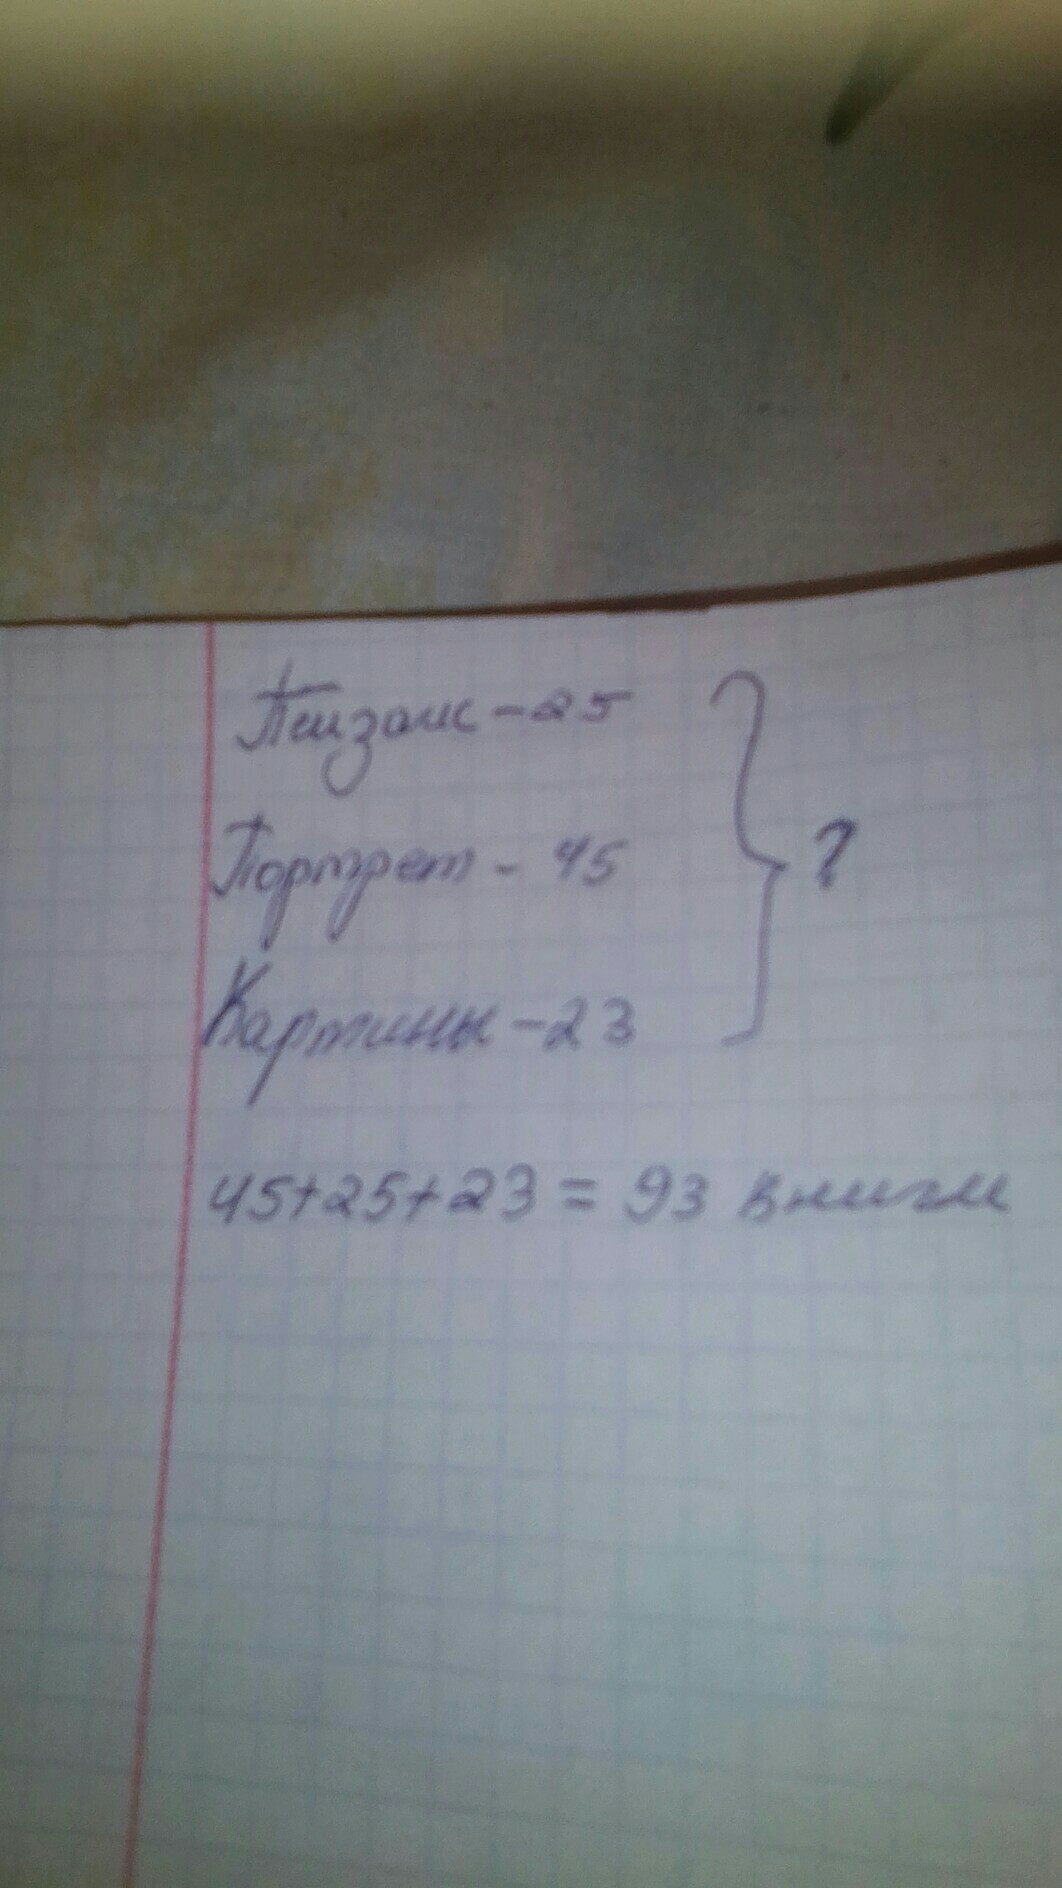 Пейзаж - 25
Портрет - 45
?
Картины - 23
45+25+23 = 93 в книге